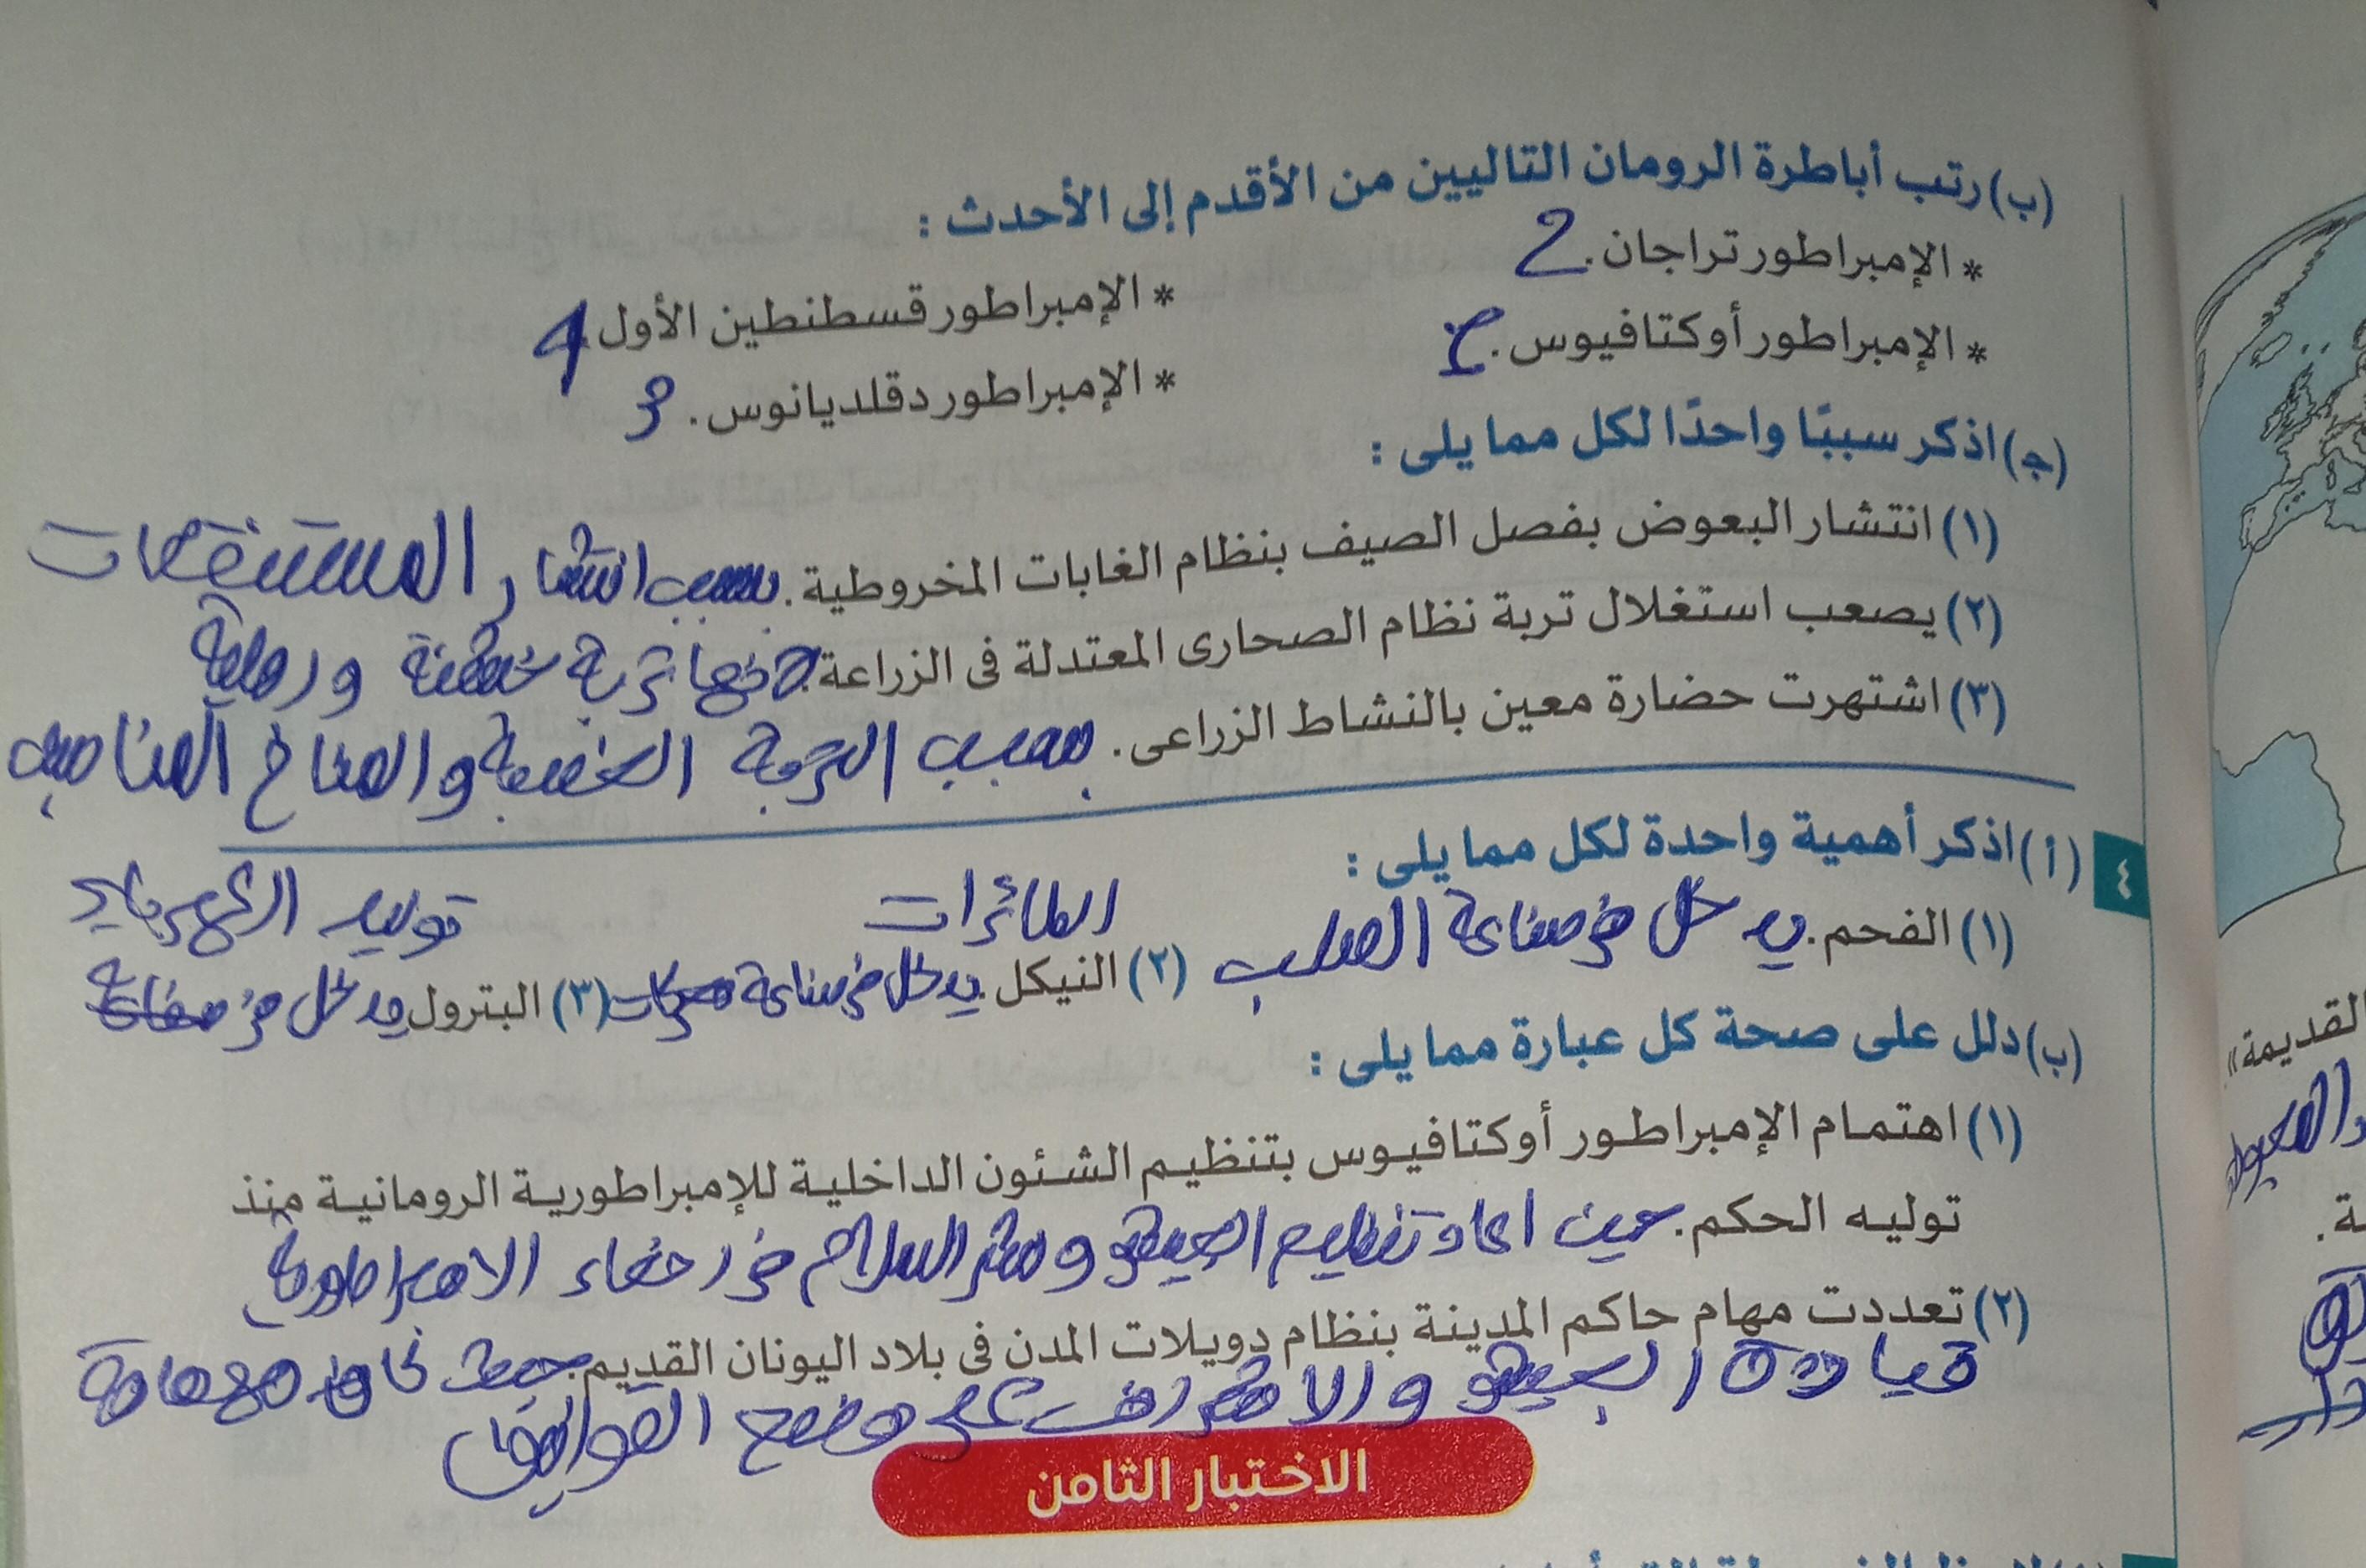 (ب) رتب أباطرة الرومان التاليين من الأقدم إلى الأحدث :
* الإمبراطور تراجان. 2
* الإمبراطور قسطنطين الأول. 4
* الإمبراطور أوكتافيوس.
* الإمبراطور دقلديانوس. 3
(ج) اذكر سببًا واحدًا لكل مما يلى :
(١) انتشار البعوض بفصل الصيف بنظام الغابات المخروطية. بسبب انتشار المستنقعات
(٢) يصعب استغلال تربة نظام الصحارى المعتدلة فى الزراعة. لانها تربة خشنة ورملية
(٣) اشتهرت حضارة معين بالنشاط الزراعى. بسبب التربة الخصبة والمناخ المناسب
٤
(أ) اذكر أهمية واحدة لكل مما يلى :
الطائرات توليد الكهرباء
(١) الفحم. يدخل فى صناعة الصلب (٢) النيكل. يدخل فى صناعة (٣) البترول. يدخل فى
(ب) دلل على صحة كل عبارة مما يلى :
(١) اهتمام الإمبراطور أوكتافيوس بتنظيم الشئون الداخلية للإمبراطورية الرومانية منذ
توليه الحكم. حيث اعاد تنظيم الجيش ونشر السلام فى ارجاء الامبراطورية
(٢) تعددت مهام حاكم المدينة بنظام دويلات المدن فى بلاد اليونان القديم. حيث كان مهامة
قيادة الجيش والاشراف على وضع القوانين
الاختبار الثامن
القديمة»
ة.